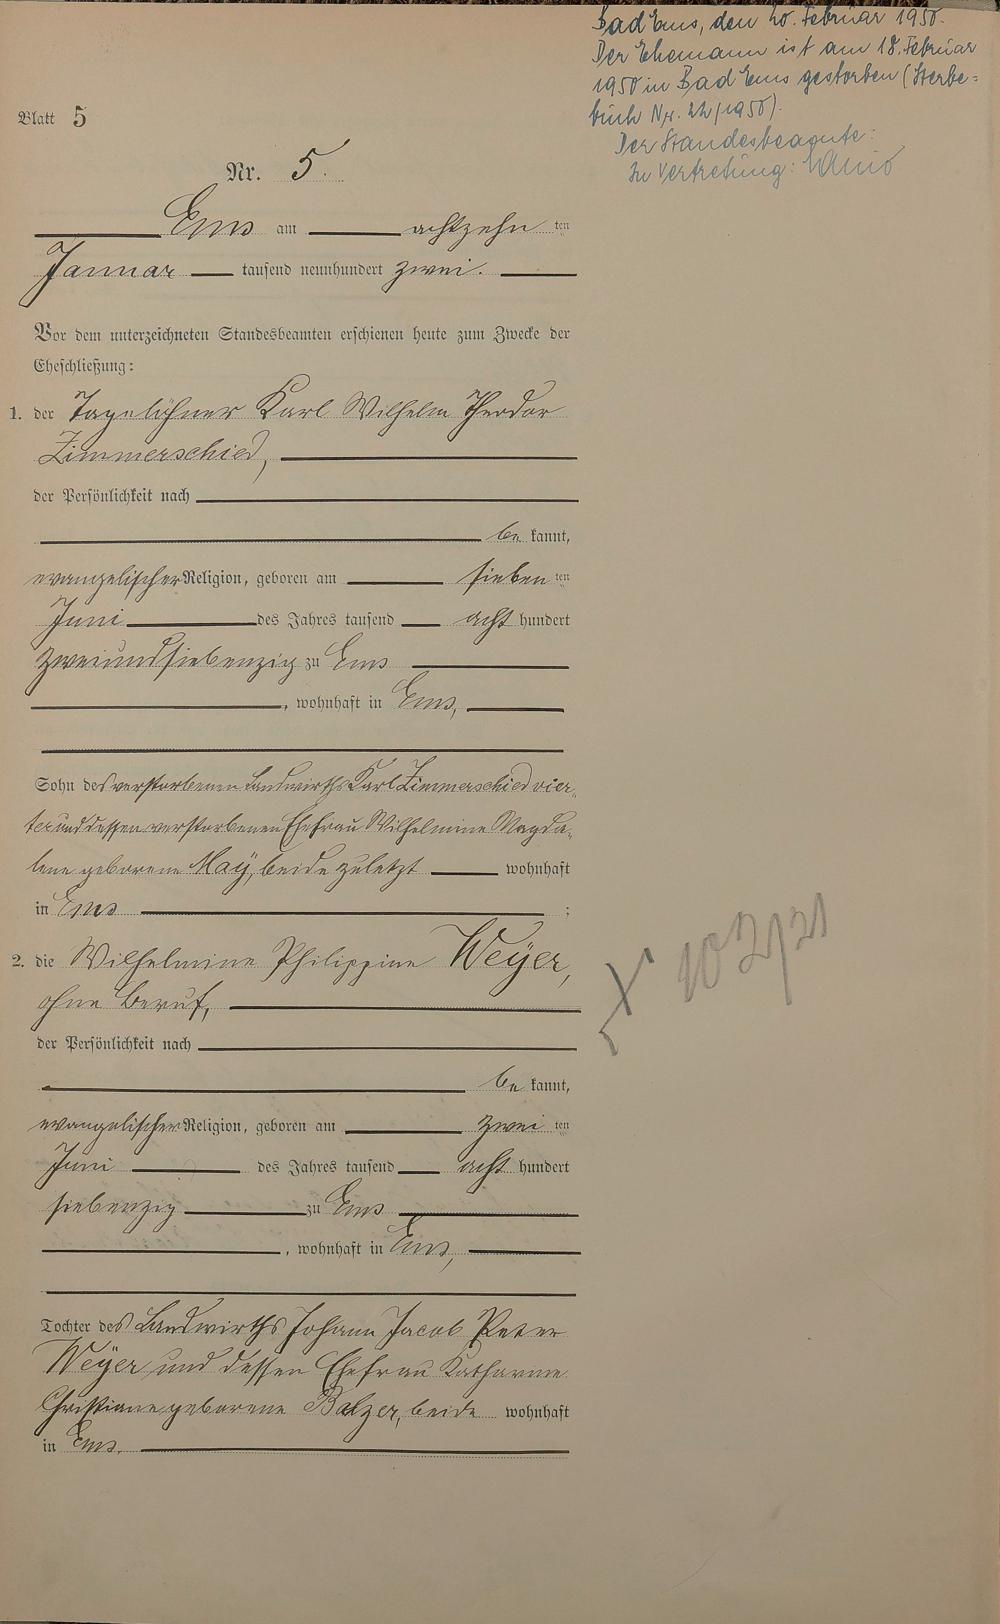 Bad Ems, den 20. Februar 1950.
Der Ehemann ist am 18. Februar
1950 in Bad Ems gestorben (Sterbe=
buch Nr. 22/1950).
Der Standesbeamte:
In Vertretung:
Blatt 5
Nr. 5.
Ems am achtzehn ten
Januar tausend neunhundert zwei.
Vor dem unterzeichneten Standesbeamten erschienen heute zum Zwecke der
Eheschließung:
1. der Tagelöhner Karl Wilhelm Theodor
Zimmerschied,
der Persönlichkeit nach
be kannt,
evangelischer Religion, geboren am sieben ten
Juni des Jahres tausend acht hundert
zweiundsiebenzig zu Ems
, wohnhaft in Ems,
Sohn des verstorbenen Landwirths Karl Zimmerschied vier-
ter und dessen verstorbenen Ehefrau Wilhelmine Magda-
lene geborene Maÿ, beide zuletzt wohnhaft
in Ems ;
2. die Wilhelmine Philippine Weÿer,
ohne Beruf,
der Persönlichkeit nach
be kannt,
evangelischer Religion, geboren am zwei ten
Juni des Jahres tausend acht hundert
siebenzig zu Ems
, wohnhaft in Ems,
Tochter des Landwirths Johann Jacob Peter
Weÿer und dessen Ehefrau Katharine
Christiane geborene Balzer, beide wohnhaft
in Ems.
102/21